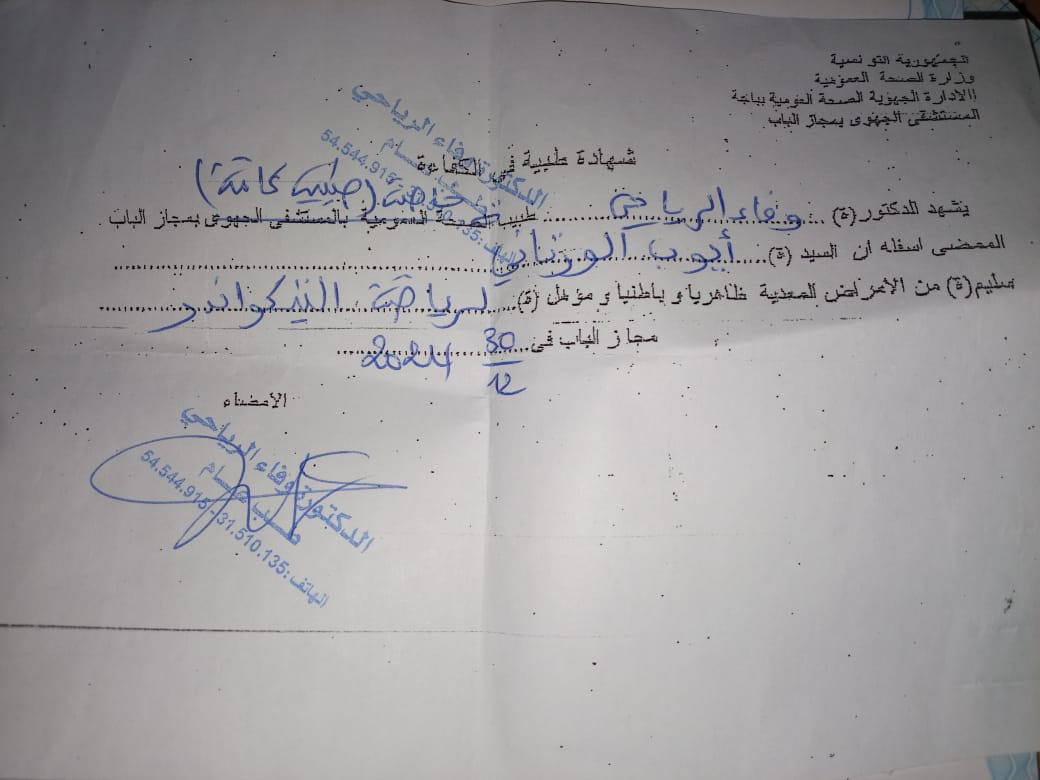 الجمهورية التونسية
وزارة الصحة العمومية
الادارة الجهوية الصحة العومية بباجة
المستشفى الجهوى بمجاز الباب
شهادة طبية في الكفاءة
يشهد الدكتور(ة) وفاء الرياحي طبيب الصحة العمومية بالمستشفى الجهوى بمجاز الباب
خاصة (طبيبة عامة)
الممضى اسفله ان السيد (ة) أيوب الورتاني
سليم(ة) من الامراض المعدية ظاهريا و باطنيا و مؤهل (ة) لرياضة التيكواندو
مجاز الباب فى 30/12 2024
الامضاء
الدكتورة وفاء الرياحي
54.544.915
الدكتورة وفاء الرياحي
طب عام
الهاتف: 31.510.135 - 54.544.915